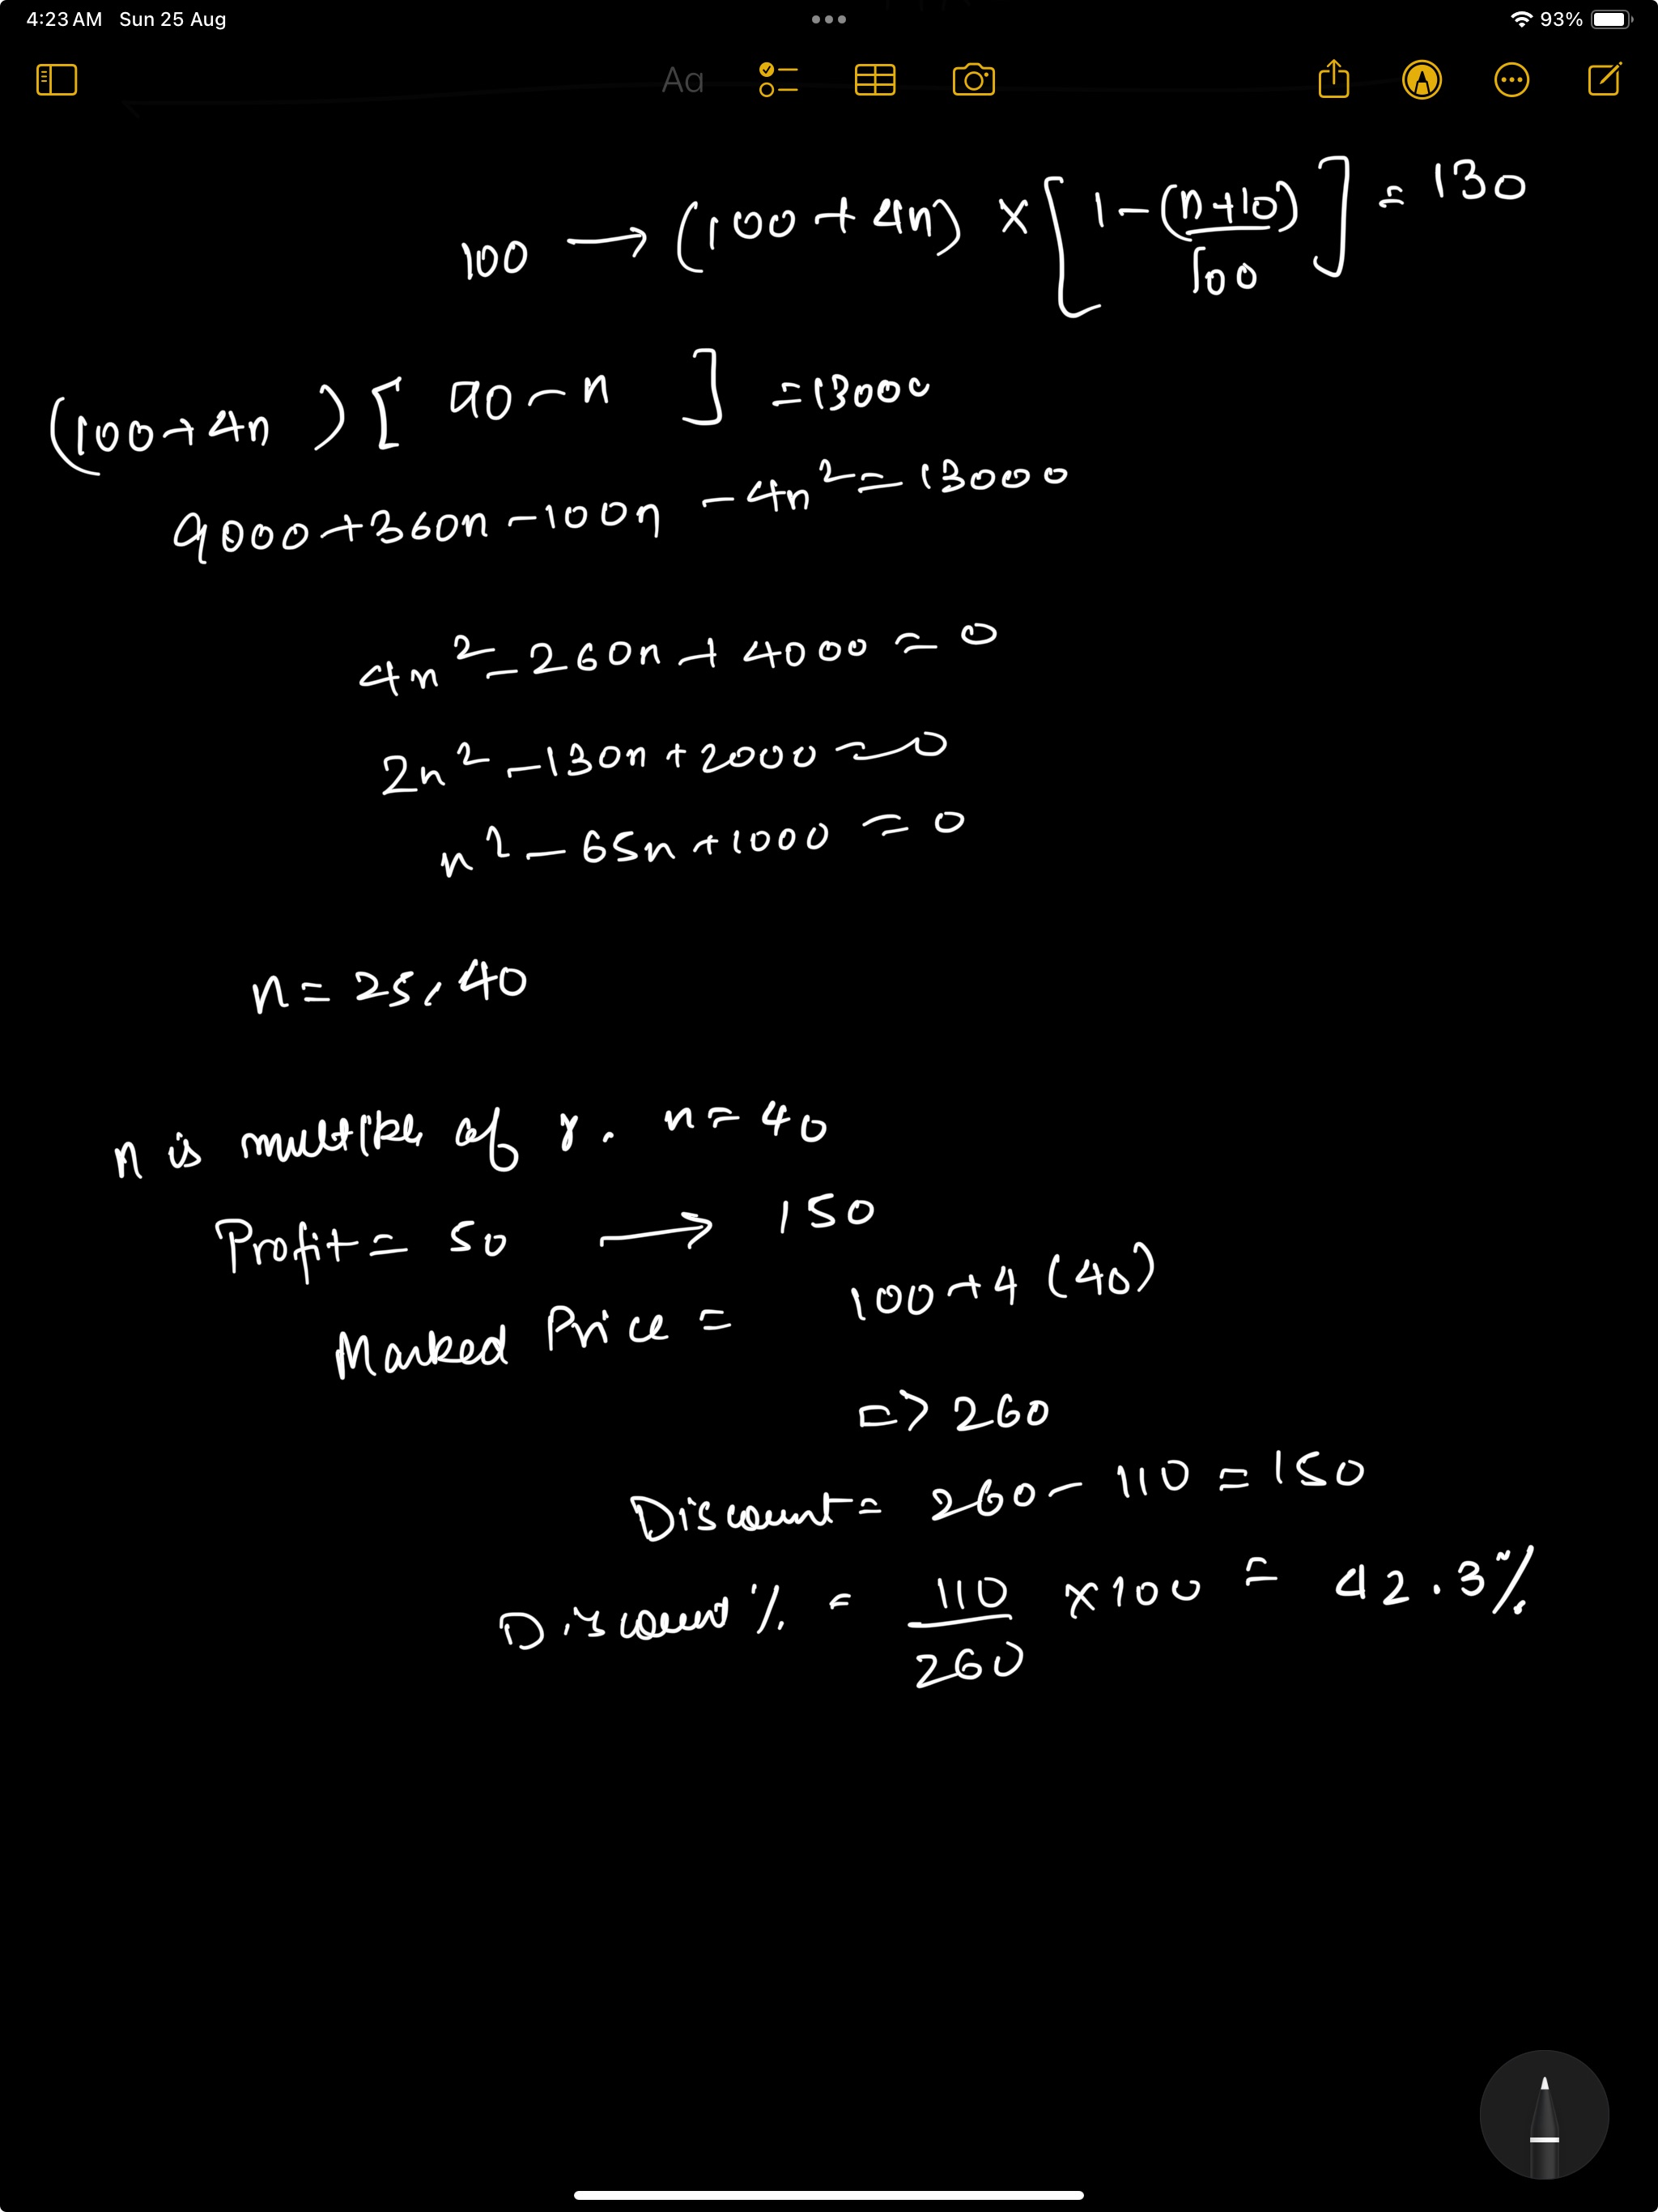 4:23 AM Sun 25 Aug
93%
Aa
100 → (100 + 4n) × [1 - (n+10)/100] = 130
(100 + 4n) [90 - n] = 13000
9000 + 360n - 100n - 4n² = 13000
4n² - 260n + 4000 = 0
2n² - 130n + 2000 = 0
n² - 65n + 1000 = 0
n = 25, 40
n is multiple of 8. n = 40
Profit = 50 → 150
Marked Price = 100 + 4 (40)
=> 260
Discount = 260 - 110 = 150
Discount % = 110/260 × 100 = 42.3%